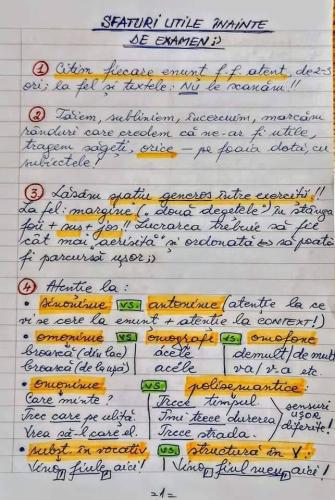 SFATURI UTILE ÎNAINTE
DE EXAMEN ;)
1 Citim fiecare enunț f.f. atent, de 2-3
ori; la fel și textele: NU le scanăm!!
2 Tăiem, subliniem, încercuim, marcăm
rânduri care credem că ne-ar fi utile,
tragem săgeți, orice - pe foaia dată, cu
subiectele!
3. Lăsăm spațiu generos între exerciții!!
La fel: margine („două degetele") în stânga
foii + sus + jos!! Lucrarea trebuie să fie
cât mai „aerisită" și ordonată să poată
fi parcursă ușor ;)
4 Atenție la:
• sinonime vs. antonime (atenție la ce
vi se cere la enunț + atenție la CONTEXT!)
• omonime vs. omografe vs. omofone
broască (din lac) acéle demult/de mult
broască (de la ușă) acéle v-a/ va etc.
• omonime vs. polisemantice:
Care minte? Trece timpul sensuri
Trec care pe uliță. Îmi trece durerea ușor
Vrea să-l care el. Trece strada. diferite!
• subst. în vocativ vs. structură în V.:
Vino, fiule, aici! Vino, fiul meu, aici!
=1=